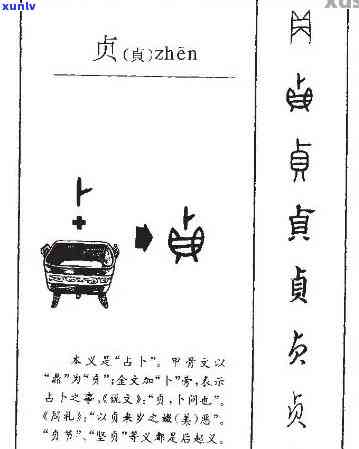 xunlv
贞(貞)zhēn
卜
本义是“占卜”。甲骨文以
“鼎”为“贞”;金文加“卜”旁,表示
占卜之事。《说文》:“贞,卜问也”。
《周礼》:“以贞来岁之媺(美)恶”。
“贞节”、“坚贞”等义都是后起义。
貞
貞
貞
贞
贞